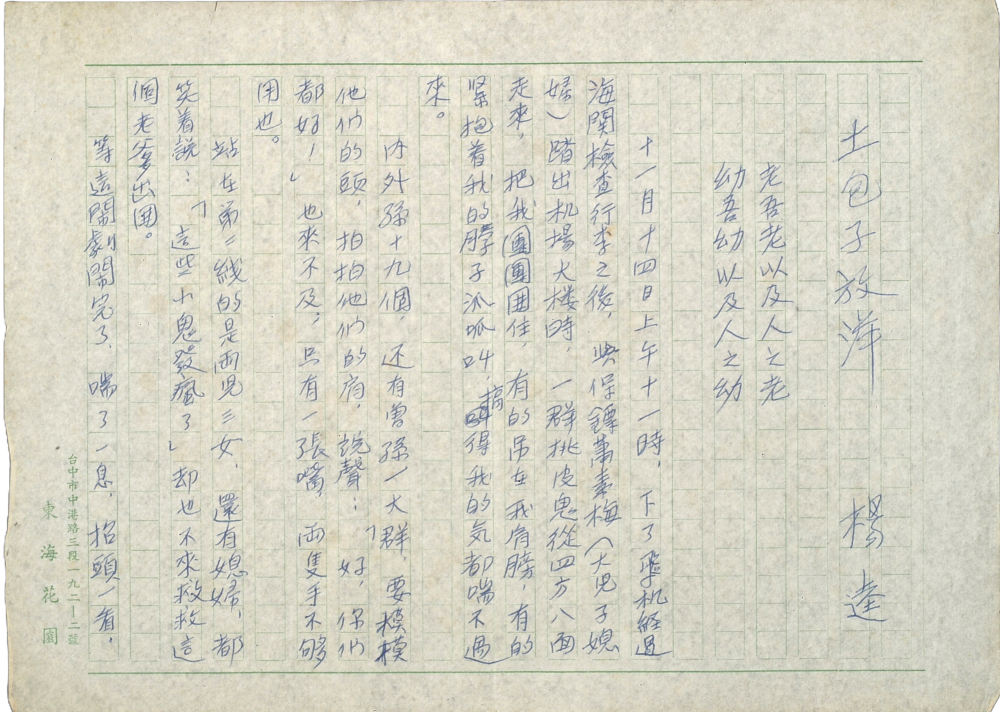 土包子放洋　楊逵
老吾老以及人之老
幼吾幼以及人之幼
十一月十四日上午十一時，下了飛机経過
海関檢查行李之後，與保鏢蕭素梅（大児子媳
婦）踏出机場大楼時，一群挑皮鬼從四方八面
走來，把我團團囲住，有的吊在我肩膀，有的
緊抱着我的脖子泒呱叫，搞得我的気都喘不過
來。
內外孫十九個，还有曾孫一大群，要模模
他们的頭，拍拍他们的肩，説聲：「好，你们
都好，」也來不及，只有一張嘴，両隻手不够
用也。
站在第二綫的是両児三女，還有媳婦，都
笑着說：「這些小鬼發瘋了」却也不來救救這
個老爹出囲。
等這鬧劇鬧完了，喘了一息，抬頭一看，
台中市中港路三段一九二—二號
東海花園